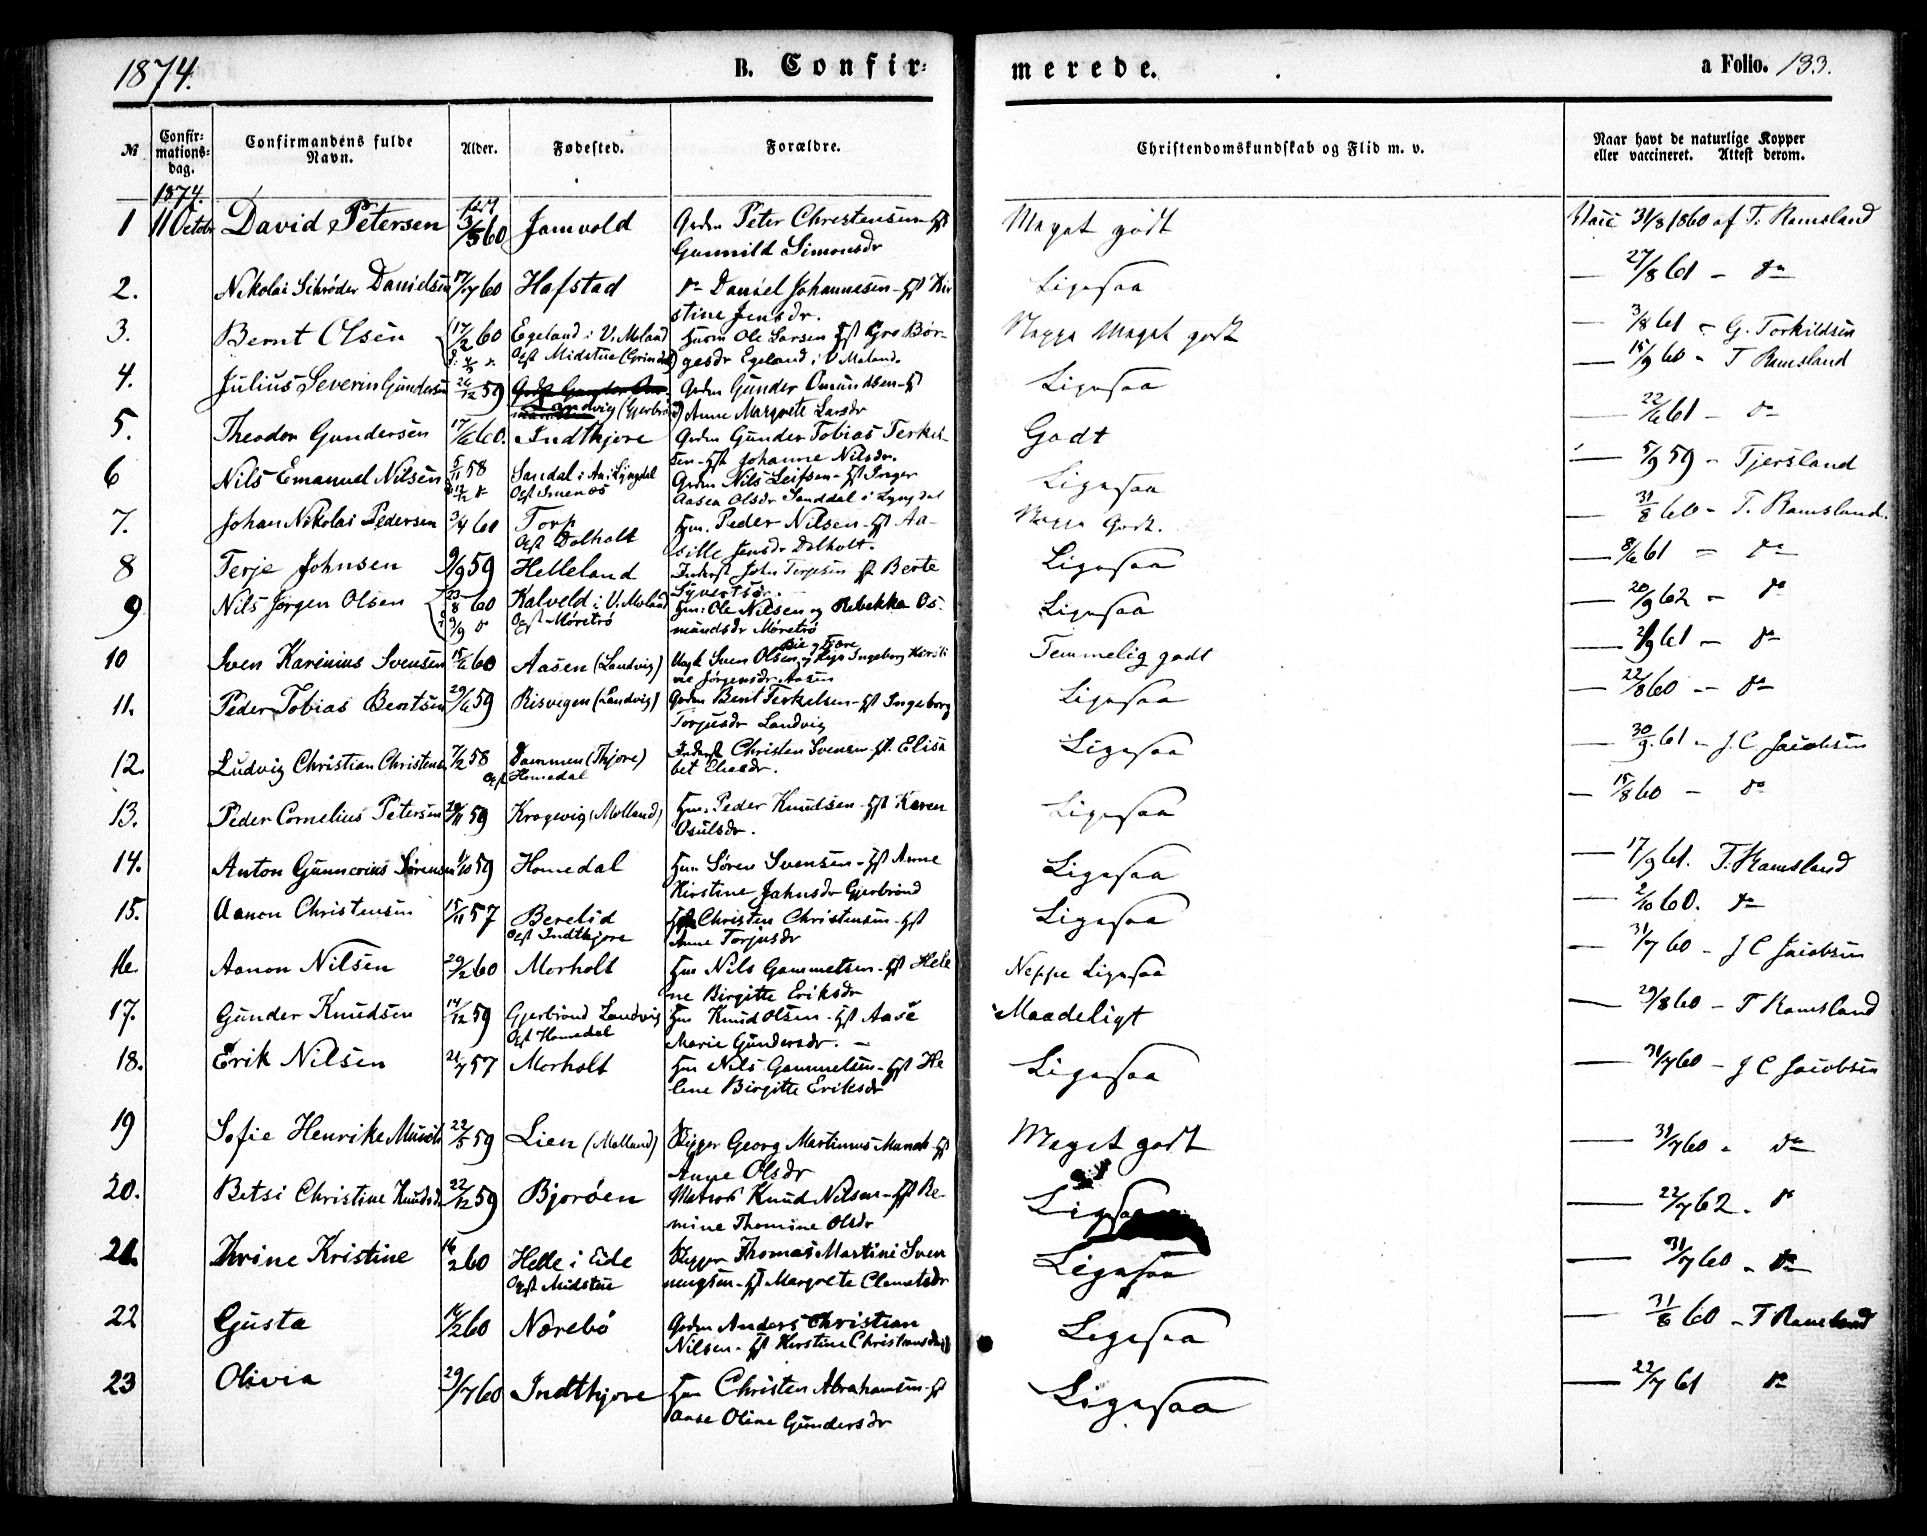 1874. B. Confir= merede. a Folio. 133.
№ Confir= mations= dag. Confirmandens fulde Navn. Alder. Fødested. Forældre. Christendomskundskab og Flid m. v. Naar havt de naturlige Kopper eller vaccineret. Attest derom.
1874.
1 11 Octobr David Petersen født 3/5 60 Jomvold Grdm Peter Christensen Hst Meget godt Vacc 31/8 1860 af T. Ramsland
Gunnild Simonsdr
2. Nikolai Schrøder Danielsen 17/7 60 Hofstad do Daniel Johannesen Hst Kir Ligesaa — 27/8 61 — do
stine Jensdr.
3. Bernt Olsen 17/2 60 Egeland i V. Moland Husm Ole Larsen Hst Gro Bør- Neppe Meget godt — 3/8 61 — G. Torkildsen
Opf Midstue (Grimstad) gesdr Egeland i V Moland.
4. Julius Severin Gundersen 26/12 59 Grdm Gunder Omundsen Hst Ligesaa — 15/9 60 — T Ramsland
Landvig (Gjerbrønd) Anne Margrete Larsdr
5. Theodor Gundersen 17/6 60. Indthjore Grdm Gunder Tobias Terkel- Godt — 22/6 61 — do
sen Hst Johanne Nilsdr.
6 Nils Emanuel Nilsen 5/11 58 Sandal i Aa. Lyngdal Grdm Nils Leifsen Hst Inger Ligesaa — 5/9 59 — Tjersland
12/12 do Opf Smenæs Aasea Olsdr Sanddal i Lyngdal
7. Johan Nikolai Pedersen 3/4 60 Torp Hm. Peder Nilsen Hst Aa- Neppe Godt. — 31/8 60 — T. Ramsland.
Opf Dalholt sille Jensdr Dalholt.
8 Terje Johnsen 9/9 59 Helleland Inderst John Terjesen Hst Berte Ligesaa — 8/6 61 — do
Syvertsdr.
9 Nils Jørgen Olsen 23/8 60 Kalveld i V. Moland Hm: Ole Nilsen og Rebekka Os- Ligesaa — 20/9 62 — do
9/9 do Opf Møretrø mundsdr Møretrø
10 Sven Karinius Svensen 15/6 60 Aasen (Landvig) Sven Olsen Bie og Fjære Ingeborg Kersti Temmelig godt — 2/9 61 — do
ne Jørgensdr Aasen
11. Peder Tobias Bentsen 29/6 59 Risvegen (Landvig) Grdm Bent Terkelsen Hst Ingeborg Ligesaa — 22/8 60 — do
Torjusdr Landvig
12. Ludvig Christian Christensen 7/12 58 Dammen (Thjore) Inderst Christen Svensen Hst. Elisa Ligesaa — 30/9. 61 — J. C Jacobsen
Opf Homedal bet Eliasdr.
13. Peder Cornelius Petersen 20/11 59 Krogevig (Molland) Hm. Peder Knudsen Hst Karen Ligesaa — 15/8 60 — do
Osulsdr.
14. Anton Gunnerius Sørensen 1/10 59 Homedal Hm Søren Svensen Hst Anne Ligesaa — 17/9 61. T. Ramsland
Kirstine Jahnsdr Gjerbrønd
15. Aanon Christensen 15/11 57 Berelid Christen Christensen Hst Ligesaa — 2/10 60. do
Opf Indthjore Anne Torjusdr
16. Aanon Nilsen 29/2 60 Morholt Hm Nils Gammelsen Hst Hele Neppe Ligesaa — 31/7 60 — J C Jacobsen
ne Birgitte Eriksdr
17. Gunder Knudsen 14/12 59 Gjerbrønd Landvig Hm Knud Olsen Hst Aase Maadeligt — 29/8 60 — T Ramsland
Opf Homedal Marie Gundersdr. —
18. Erik Nilsen 21/7 57 Morholt Hm Nils Gammelsen Hst He Ligesaa — 31/7 60 — J C Jacobsen
lene Birgitte Eriksdr
19 Sofie Henrike Munch 22/5 59 Lien (Molland) Skipper Georg Martinius Munch Hst Meget godt — 31/7 60 — do
Anne Olsdr
20. Betsi Christine Knudsdr 22/12 59 Bjorøen Matros Knud Nilsen Hst Be- Ligesaa — 22/7 62. do
mine Thomine Olsdr
21. Thrine Kristine 16/2 60 Helle i Eide Skipper Thomas Martini Sven Ligesaa — 31/7 60 — do
Opf Midstue nungsen Hst Margrete Clemetsdr
22 Gusta 16/2 60 Nærebø Grdm Anders Christian Ligesaa — 31/8 60 — T Ramsland
Nilsen Hst Kerstine Christiansdr
23 Olivia 29/7 60 Indthjore Hm Christen Abrahamsen Hst Ligesaa — 22/7 61 do
Aase Oline Gundersdr